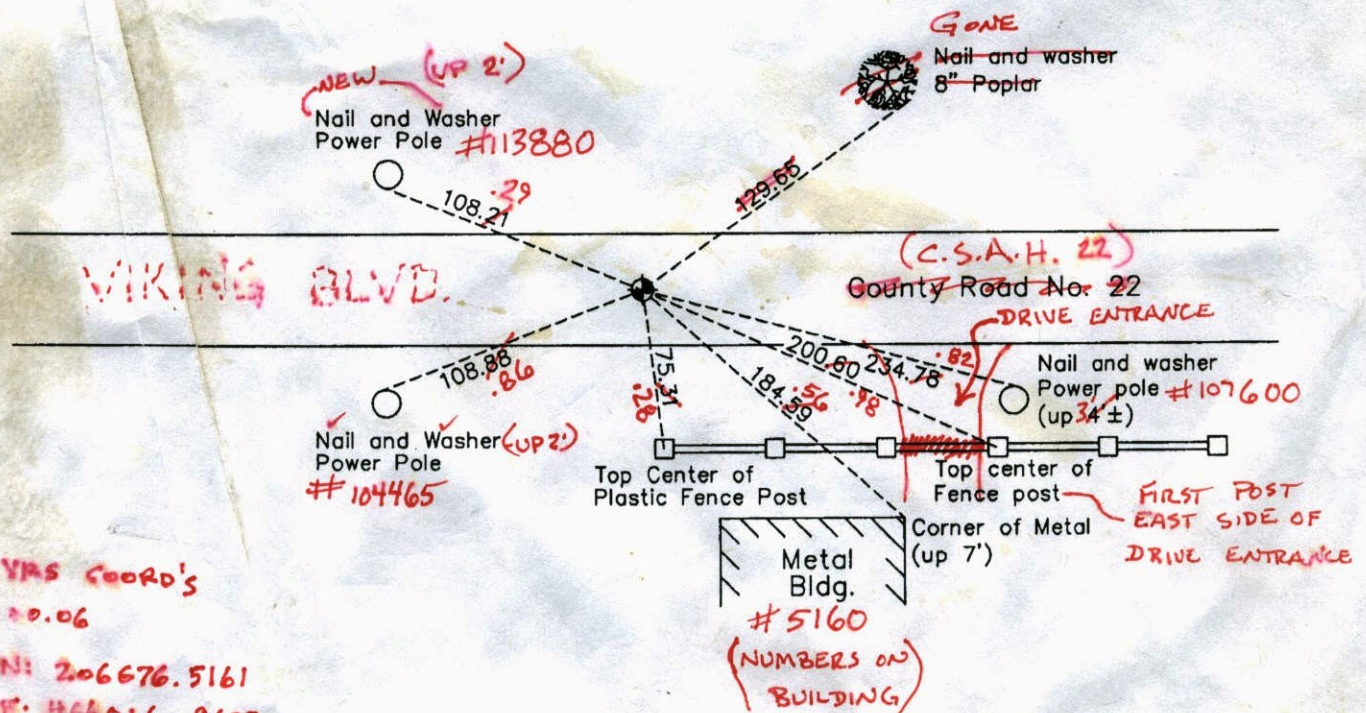 GONE
Nail and washer
8" Poplar
NEW (UP 2')
Nail and Washer
Power Pole #113880
129.65
108.21 .29
(C.S.A.H. 22)
VIKING BLVD.
County Road No. 22
DRIVE ENTRANCE
108.88 .86
75.31 .28
184.59 .56
200.60 .98
234.78 .82
Nail and washer
Power pole #107600
(up 34'±)
Nail and Washer (UP 2')
Power Pole
#104465
Top Center of
Plastic Fence Post
Top center of
Fence post
FIRST POST
EAST SIDE OF
DRIVE ENTRANCE
Corner of Metal
(up 7')
Metal
Bldg.
#5160
(NUMBERS ON
BUILDING)
COORD'S
0.06
N: 206676.5161